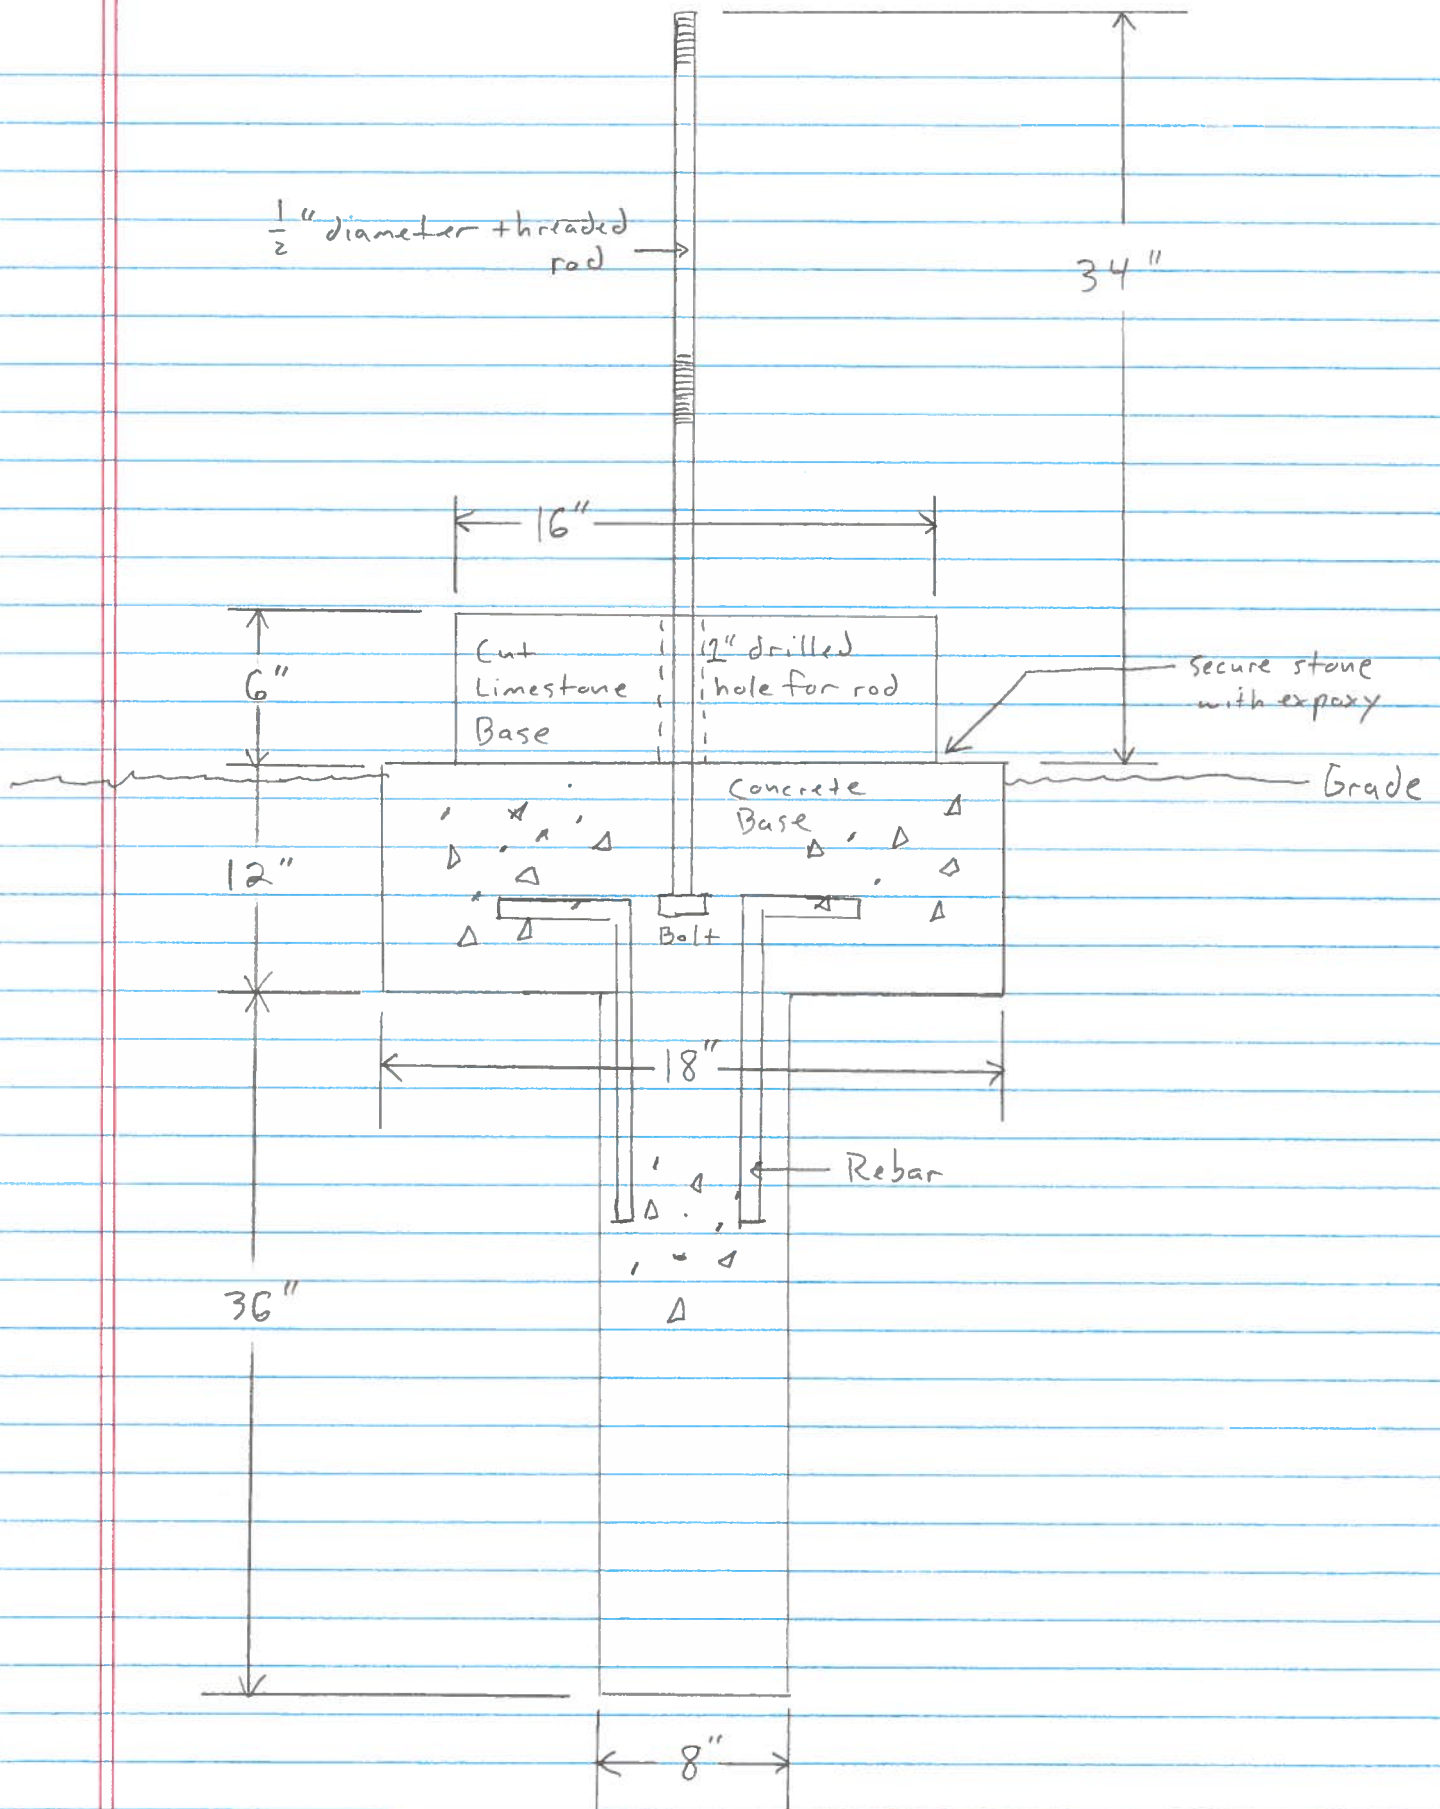 1/2" diameter threaded
rod
34"
16"
6"
Cut
Limestone
Base
1" drilled
hole for rod
secure stone
with expoxy
Grade
Concrete
Base
12"
Bolt
18"
Rebar
36"
8"